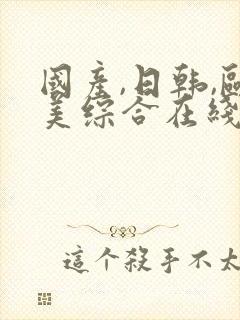 國産,日韩,歐
美综合在綫
這个殺手不太